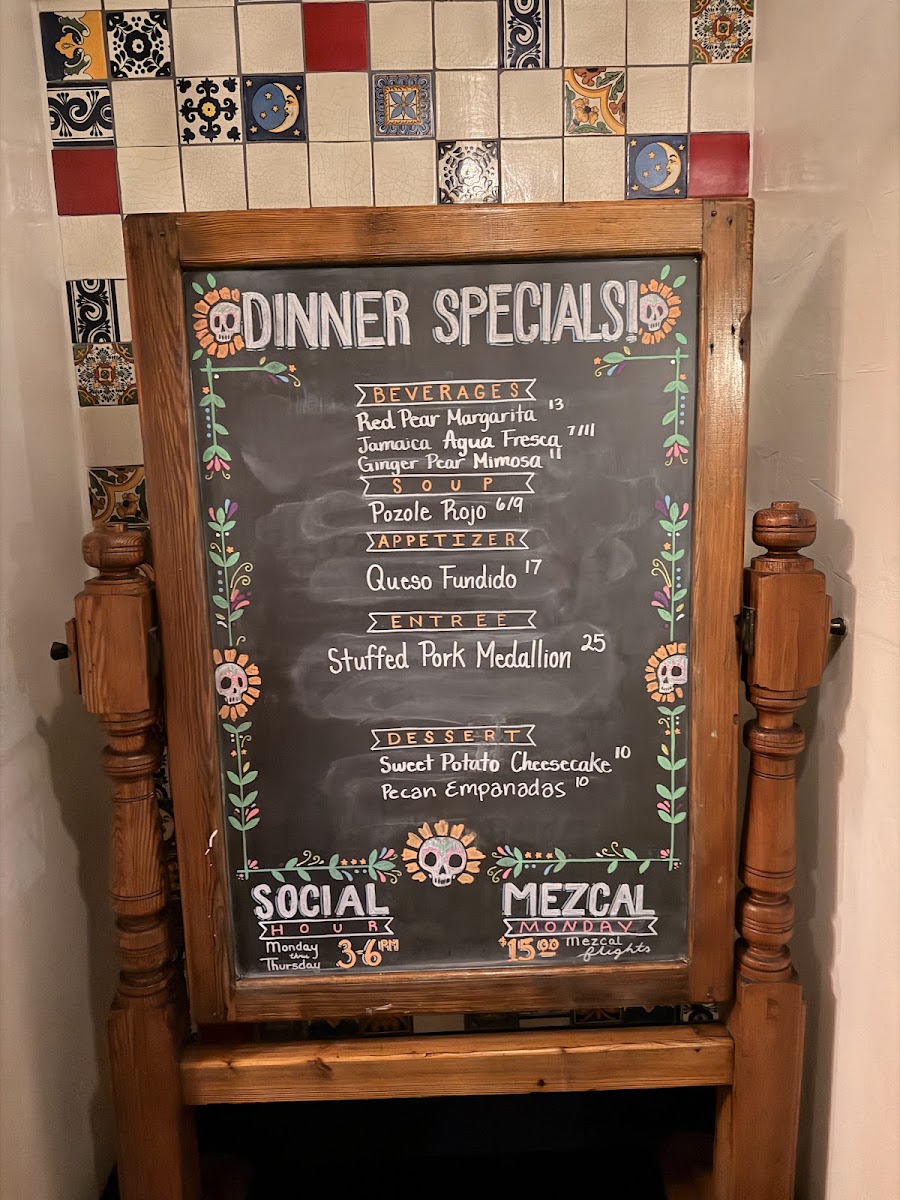 DINNER SPECIALS!
BEVERAGES
Red Pear Margarita 13
Jamaica Agua Fresca 7/11
Ginger Pear Mimosa 11
SOUP
Pozole Rojo 6/9
APPETIZER
Queso Fundido 17
ENTREE
Stuffed Pork Medallion 25
DESSERT
Sweet Potato Cheesecake 10
Pecan Empanadas 10
SOCIAL
HOUR
Monday thru Thursday 3-6PM
MEZCAL
MONDAY
$15.00 Mezcal flights